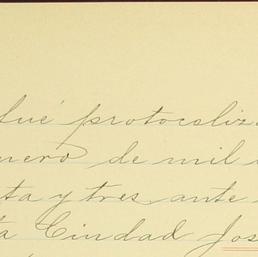 fué protocoliz
nero de mil
ta y tres, ante
ta Ciudad Jos